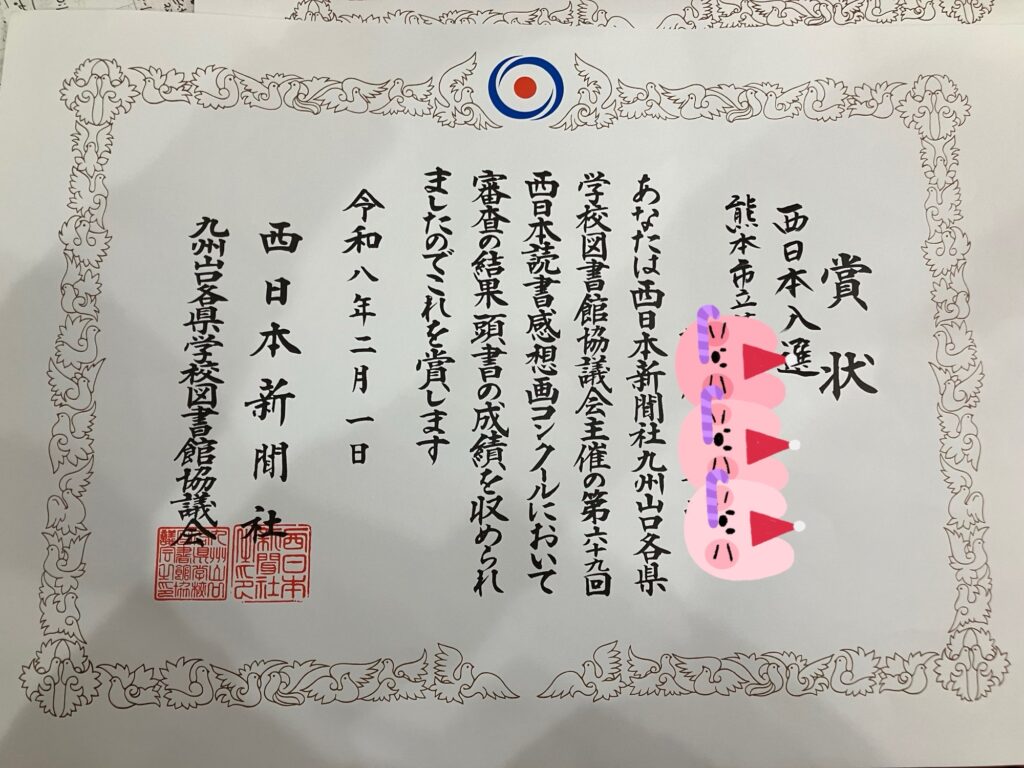 賞状
西日本入選
熊本市立
あなたは西日本新聞社九州山口各県
学校図書館協議会主催の第六十九回
西日本読書感想画コンクールにおいて
審査の結果頭書の成績を収められ
ましたのでこれを賞します
令和八年二月一日
西日本新聞社
九州山口各県学校図書館協議会